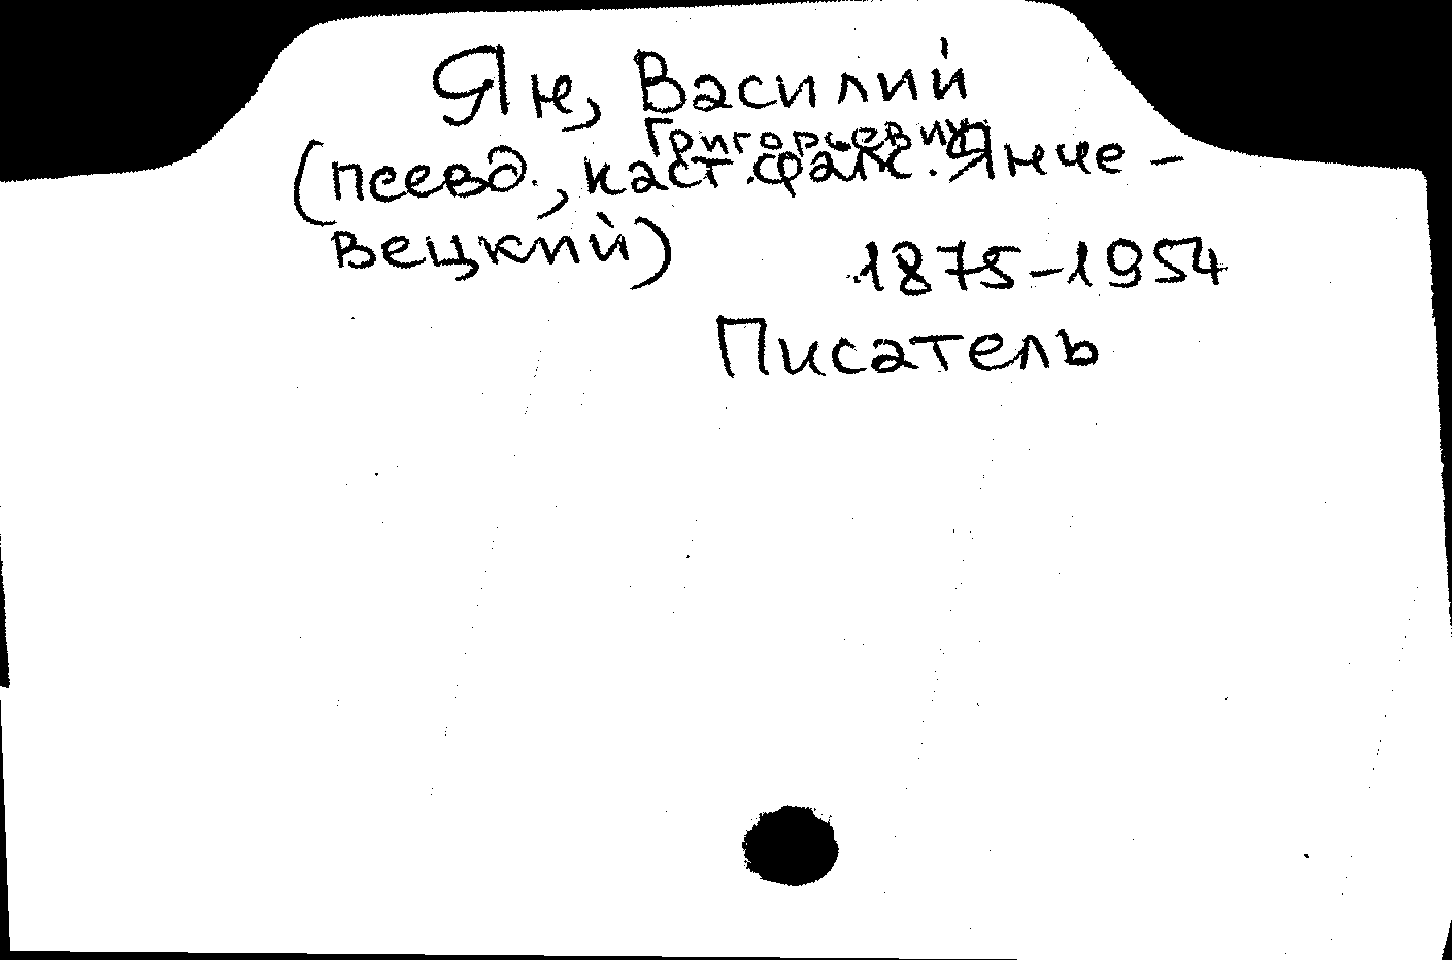 Ян, Василий
Григорьевич
(псевд., наст. фам. Янче-
вецкий)
1875-1954
Писатель